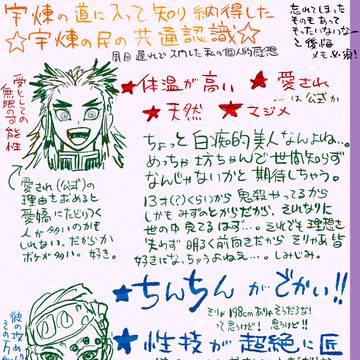 宇煉の道に入って知り納得した
☆宇煉の民の共通認識☆
周回遅れでスワした私の個人的感想
忘れてしまった
ものもあって
もったいないなー
と後悔
メモ必須!
愛としての
無限の可能性
★体温が高い ★愛され
…は公式か
★天然 ★マジメ
ちょっと白痴的美人なんよね…。
めっちゃ坊ちゃんで世間知らず
なんじゃないかと期待しちゃう。
13才(?)くらいから鬼殺やってるから
しかもみずのとからだから、それなりに
世の中見てるはず…。それでも理想を
失わず明るく前向きだからそりゃあ皆
好きになっちゃうよねえ…。しみじみ。
愛され(公式)の
理由を求めると
愛嬌にたどりつく
人が多いのかも
しれない。だからか
ボケが多い。好き。
★ちんちんがでかい!!
そりゃ198cmありゃそうだろな!
って思うけど! 思うけど!!
★性技が超絶に匠
彼の攻め